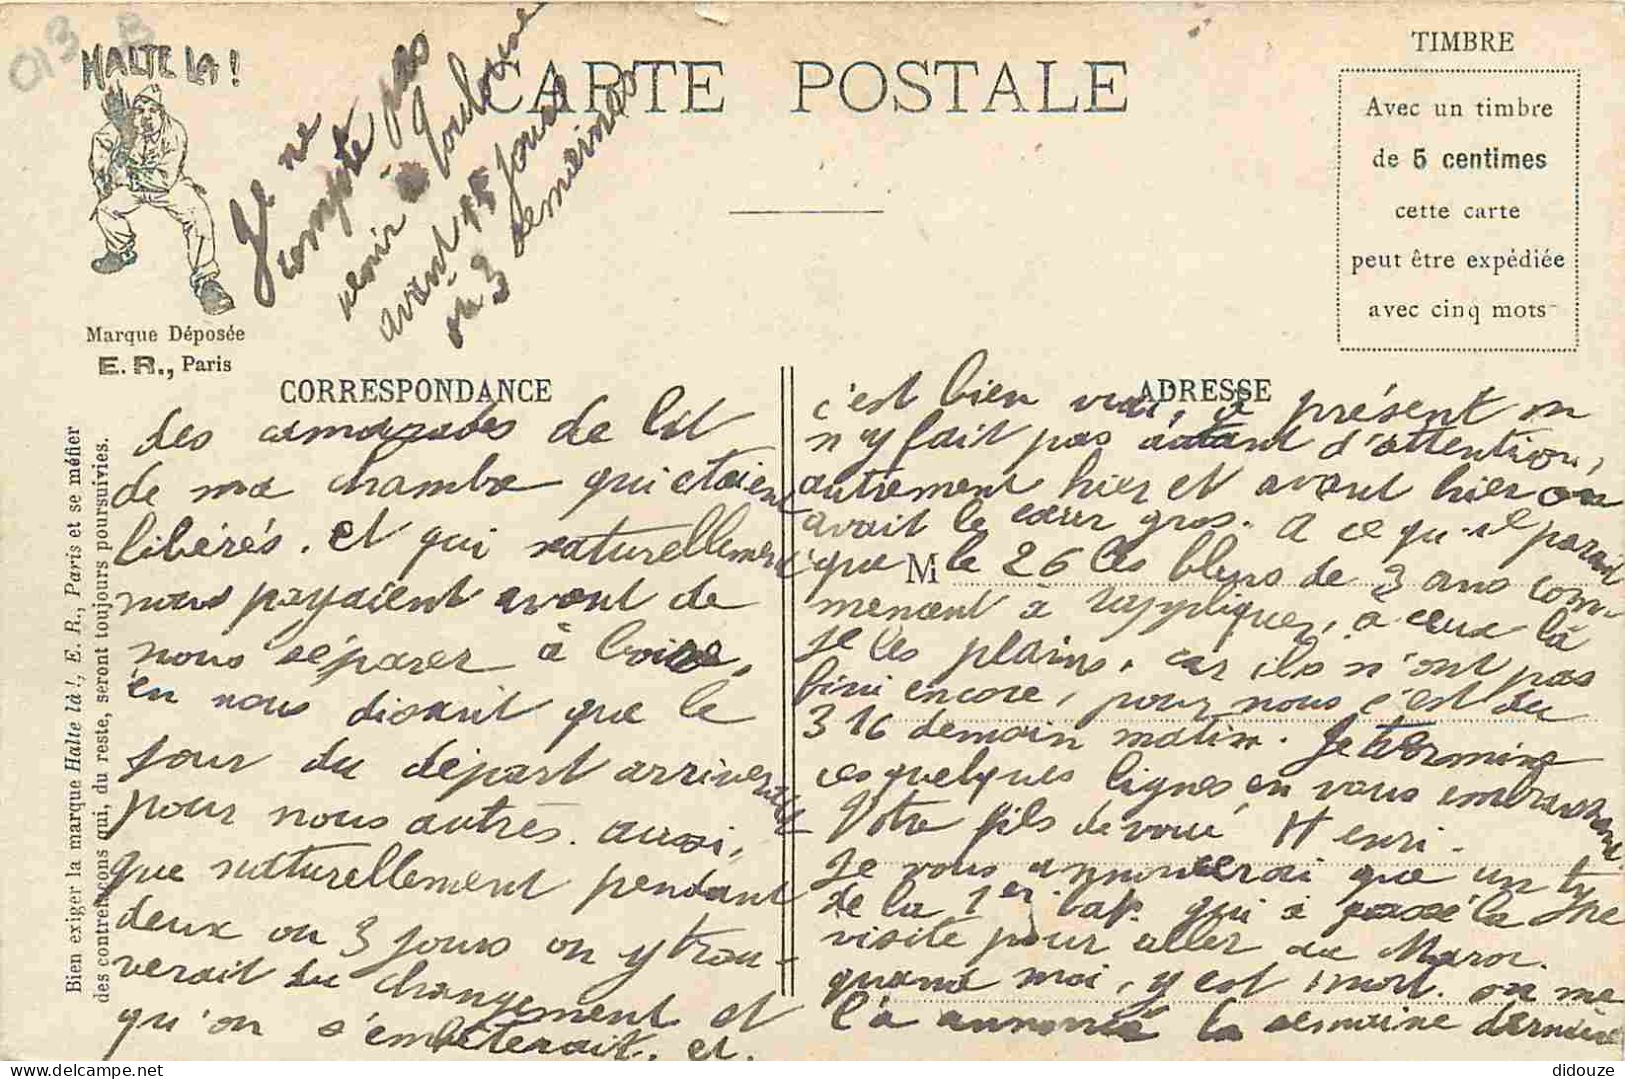 HALTE là !
CARTE POSTALE
Marque Déposée
E. R., Paris
TIMBRE
Avec un timbre
de 5 centimes
cette carte
peut être expédiée
avec cinq mots
Je ne
compte pas
venir à Toulouse
avant 15 jours
ou 3 semaines
CORRESPONDANCE
ADRESSE
M
Bien exiger la marque Halte là !, E. R., Paris et se méfier
des contrefaçons qui, du reste, seront toujours poursuivies.
des camarades de lit
de ma chambre qui etaient
libérés. et qui naturellement
nous payaient avant de
nous séparer à boire,
en nous disant que le
jour du départ arriverait
pour nous autres. aussi,
que naturellement pendant
deux ou 3 jours on y trou-
verait du changement et
qu'on s'embêterait. et.
c'est bien vrai, à présent on
n'y fait pas autant d'attention,
autrement hier et avant hier on
avait le cœur gros. A ce qu'il parait
que le 26 les bleus de 3 ans com-
mencent à rappliquer, à ceux là
je les plains, car ils n'ont pas
fini encore, pour nous c'est du
316 demain matin. Je termine
ces quelques lignes en vous embrassant
Votre fils dévoué Henri.
Je vous annoncerai que un type
de la 1er bat. qui a passé la
visite pour aller au Maroc.
quand moi, y est mort. on me
l'a annoncé la semaine dernière